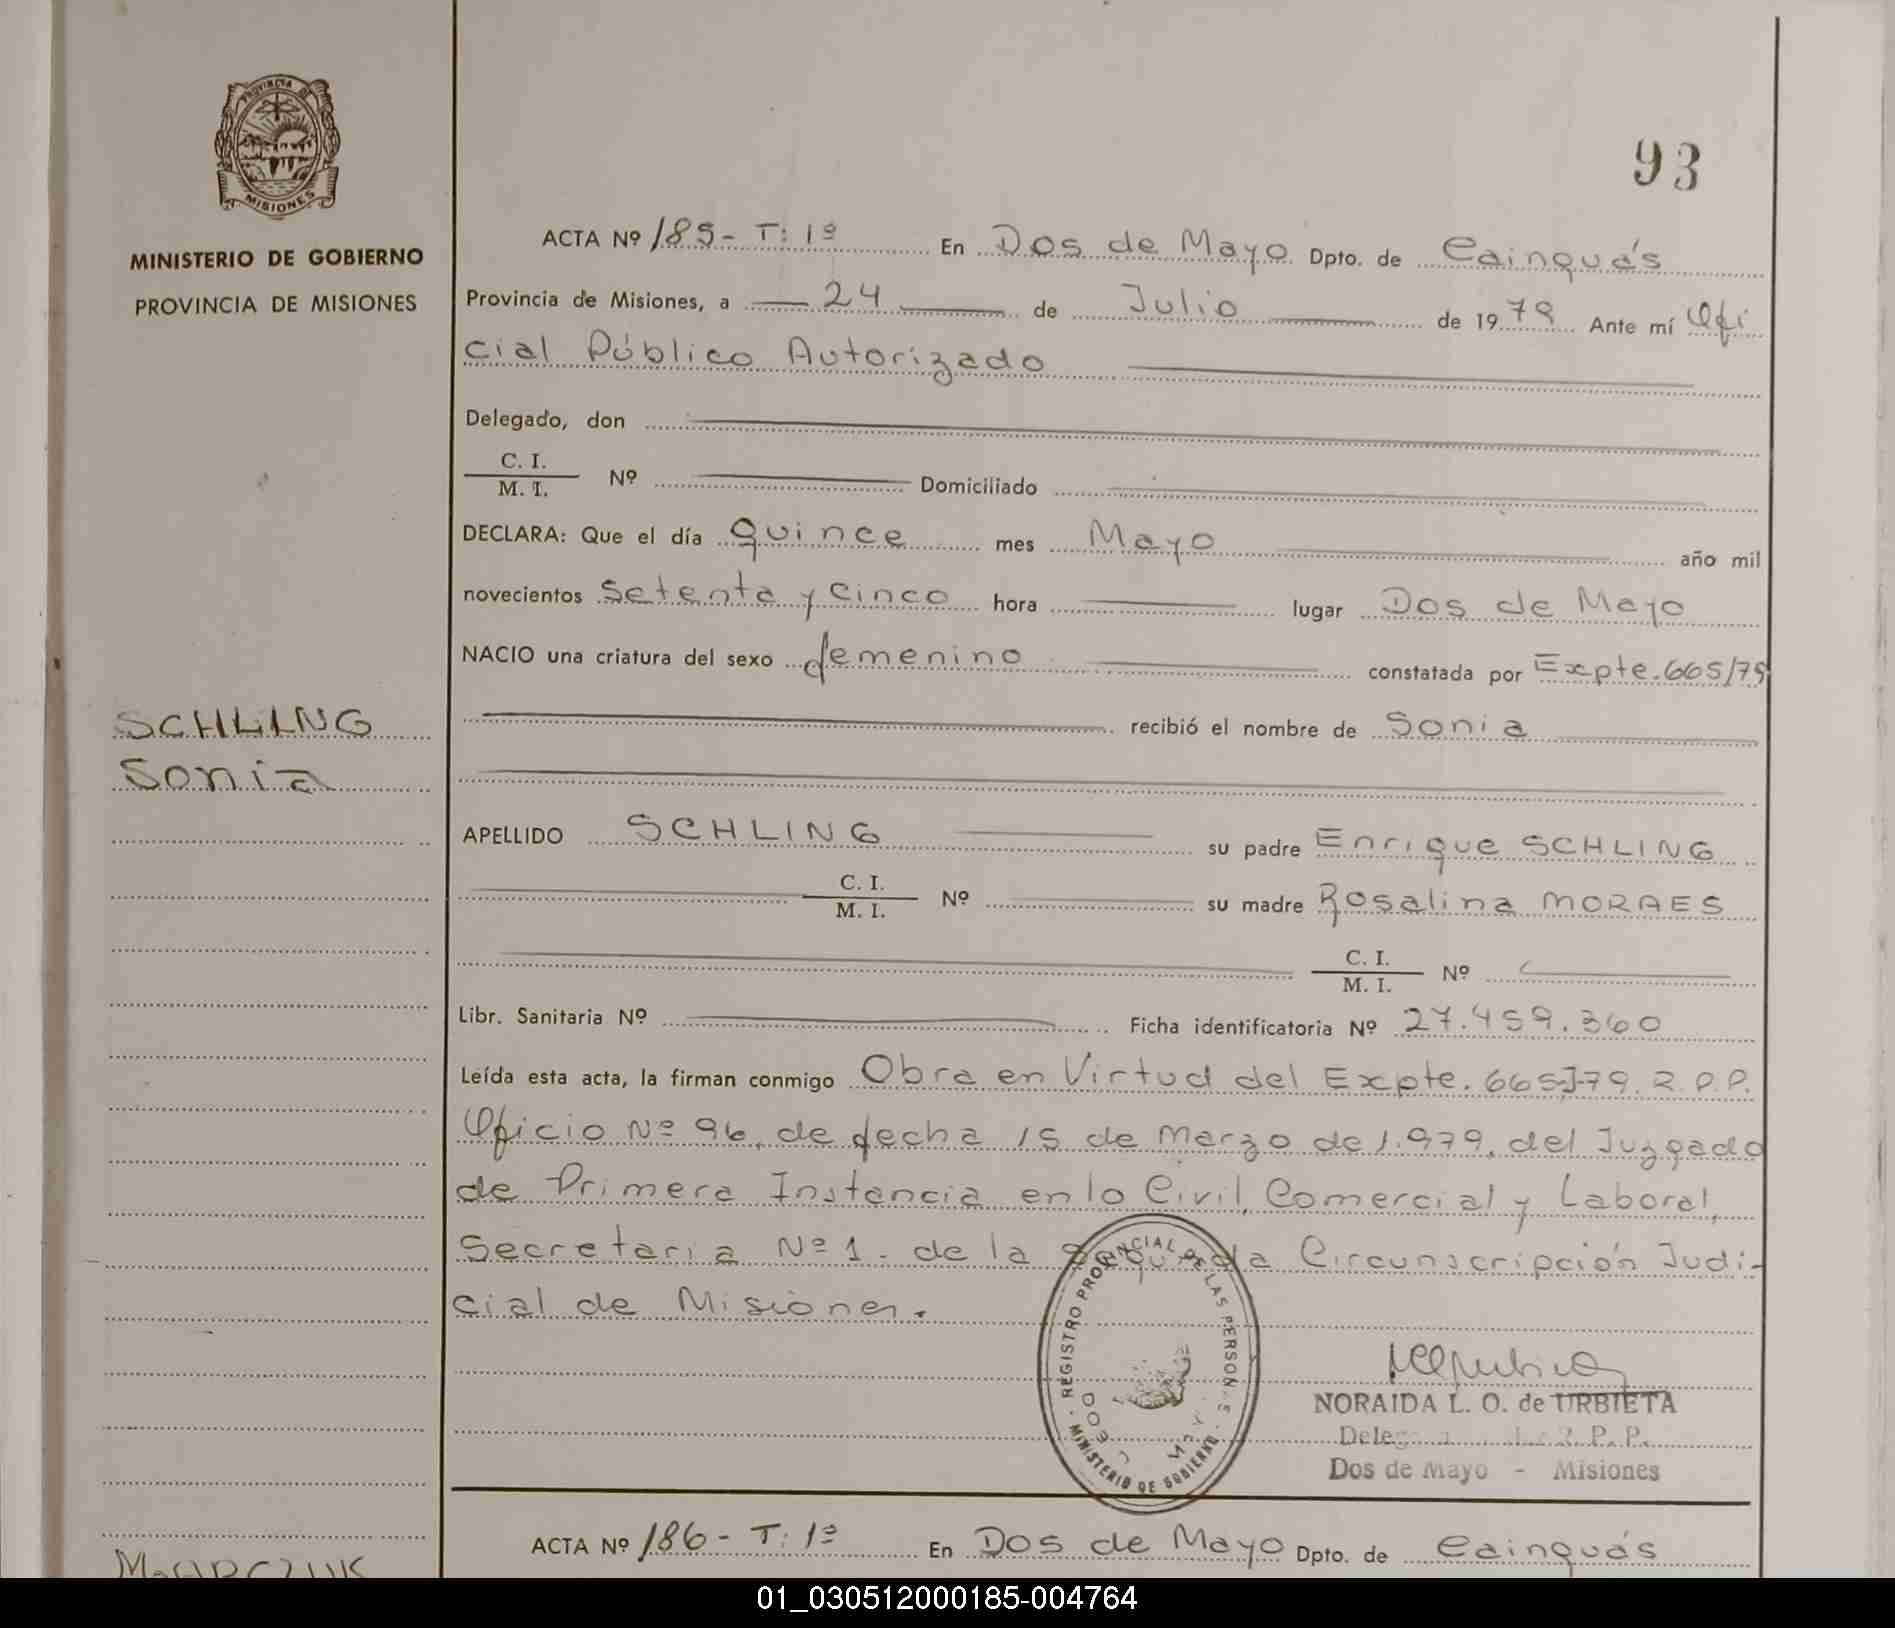 PROVINCIA DE
MISIONES
MINISTERIO DE GOBIERNO
PROVINCIA DE MISIONES
93
ACTA Nº 185 - T: 1º En Dos de Mayo Dpto. de Cainguás
Provincia de Misiones, a 24 de Julio de 1979 Ante mí Ofi
cial Público Autorizado
Delegado, don
C. I.
M. I. Nº Domiciliado
DECLARA: Que el día quince mes Mayo año mil
novecientos setenta y cinco hora lugar Dos de Mayo
NACIO una criatura del sexo femenino constatada por Expte. 665/79
SCHLING
Sonia
recibió el nombre de Sonia
APELLIDO SCHLING su padre Enrique SCHLING
C. I.
M. I. Nº su madre Rosalina MORAES
C. I.
M. I. Nº
Libr. Sanitaria Nº Ficha identificatoria Nº 27.459.360
Leída esta acta, la firman conmigo Obra en Virtud del Expte. 665-J-79. R.P.P.
Oficio Nº 96, de fecha 15 de Marzo de 1.979, del Juzgado
de Primera Instancia en lo Civil, Comercial y Laboral,
Secretaria Nº 1. de la Segunda Circunscripción Judi-
cial de Misiones.
REGISTRO PROVINCIAL DE LAS PERSONAS
MINISTERIO DE GOBIERNO
NORAIDA L. O. de URBIETA
R. P. P.
Dos de Mayo - Misiones
ACTA Nº 186 - T: 1º En Dos de Mayo Dpto. de Cainguás
01_030512000185-004764